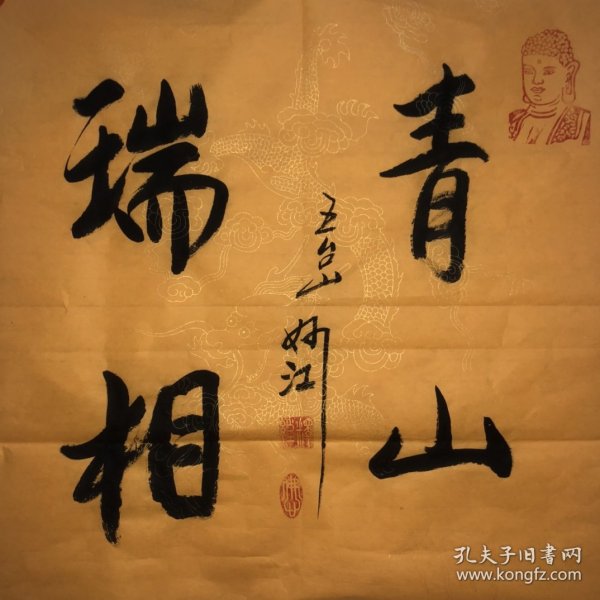 青山
瑞相
五台山 妙江
孔夫子旧书网
www.kongfz.com